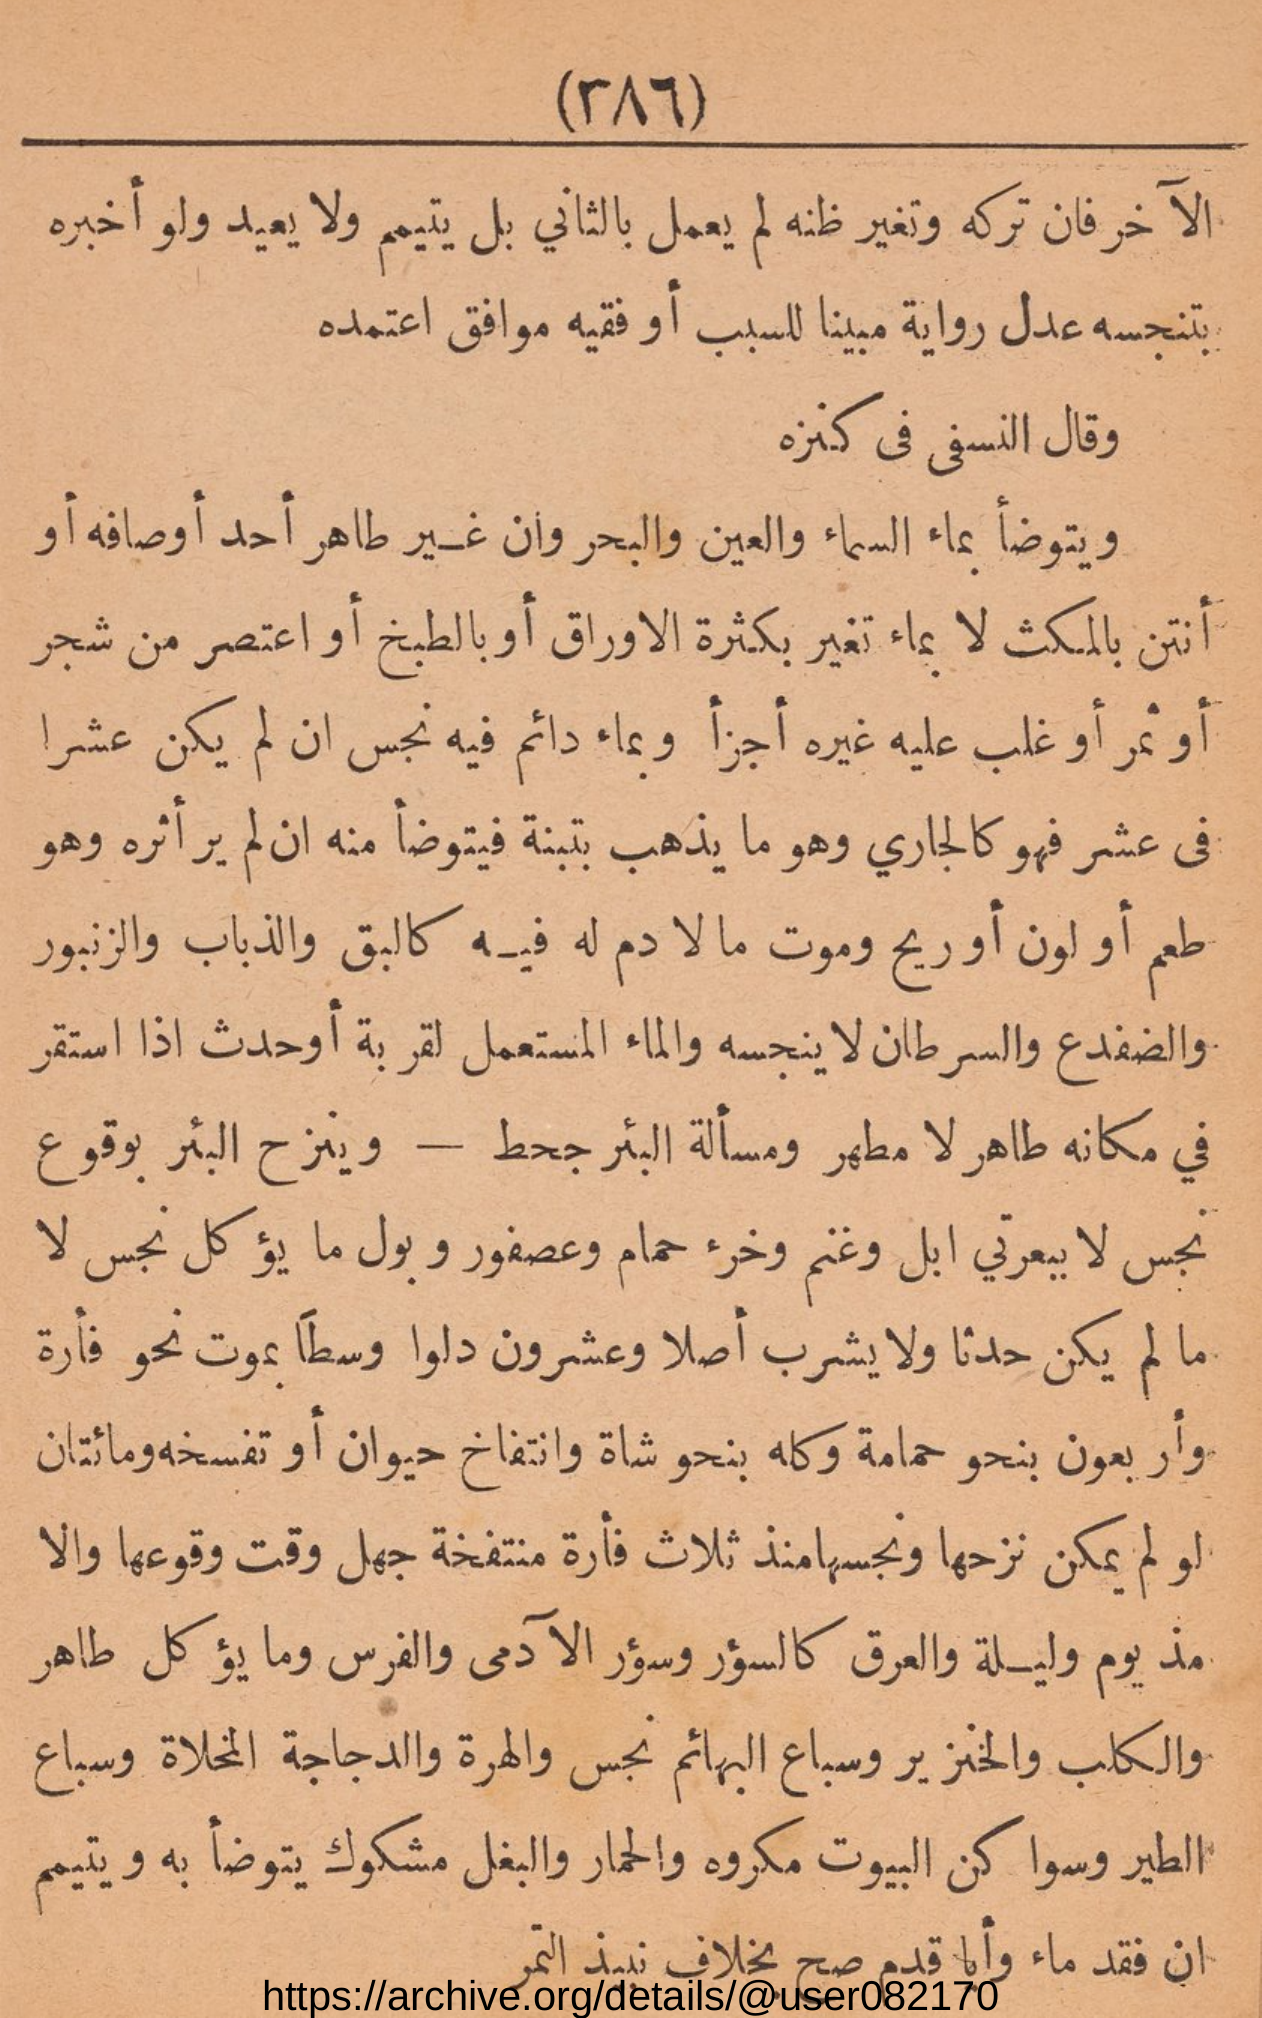 (٣٨٦)
الآخر فان تركه وتغير ظنه لم يعمل بالثاني بل يتيمم ولا يعيد ولو أخبره
بتنجسه عدل رواية مبينا للسبب أو فقيه موافق اعتمده
وقال النسفى فى كنزه
ويتوضأ بماء السماء والعين والبحر وان غير طاهر أحد أوصافه أو
أنتن بالمكث لا بماء تغير بكثرة الاوراق أو بالطبخ أو اعتصر من شجر
أو ثمر أو غلب عليه غيره أجزأ وبماء دائم فيه نجس ان لم يكن عشرا
فى عشر فهو كالجاري وهو ما يذهب بتبنة فيتوضأ منه ان لم ير أثره وهو
طعم أو لون أو ريح وموت ما لا دم له فيه كالبق والذباب والزنبور
والضفدع والسرطان لا ينجسه والماء المستعمل لقربة أوحدث اذا استقر
في مكانه طاهر لا مطهر ومسألة البئر جحط — وينزح البئر بوقوع
نجس لا ببعرتي ابل وغنم وخرء حمام وعصفور وبول ما يؤكل نجس لا
ما لم يكن حدثا ولا يشرب أصلا وعشرون دلوا وسطا بموت نحو فأرة
وأربعون بنحو حمامة وكله بنحو شاة وانتفاخ حيوان أو تفسخه ومائتان
لو لم يمكن نزحها ونجسها منذ ثلاث فأرة منتفخة جهل وقت وقوعها والا
مذ يوم وليلة والعرق كالسؤر وسؤر الآدمى والفرس وما يؤكل طاهر
والكلب والخنزير وسباع البهائم نجس والهرة والدجاجة المخلاة وسباع
الطير وسواكن البيوت مكروه والحمار والبغل مشكوك يتوضأ به ويتيمم
ان فقد ماء وأيا قدم صح بخلاف نبيذ التمر
https://archive.org/details/@user082170